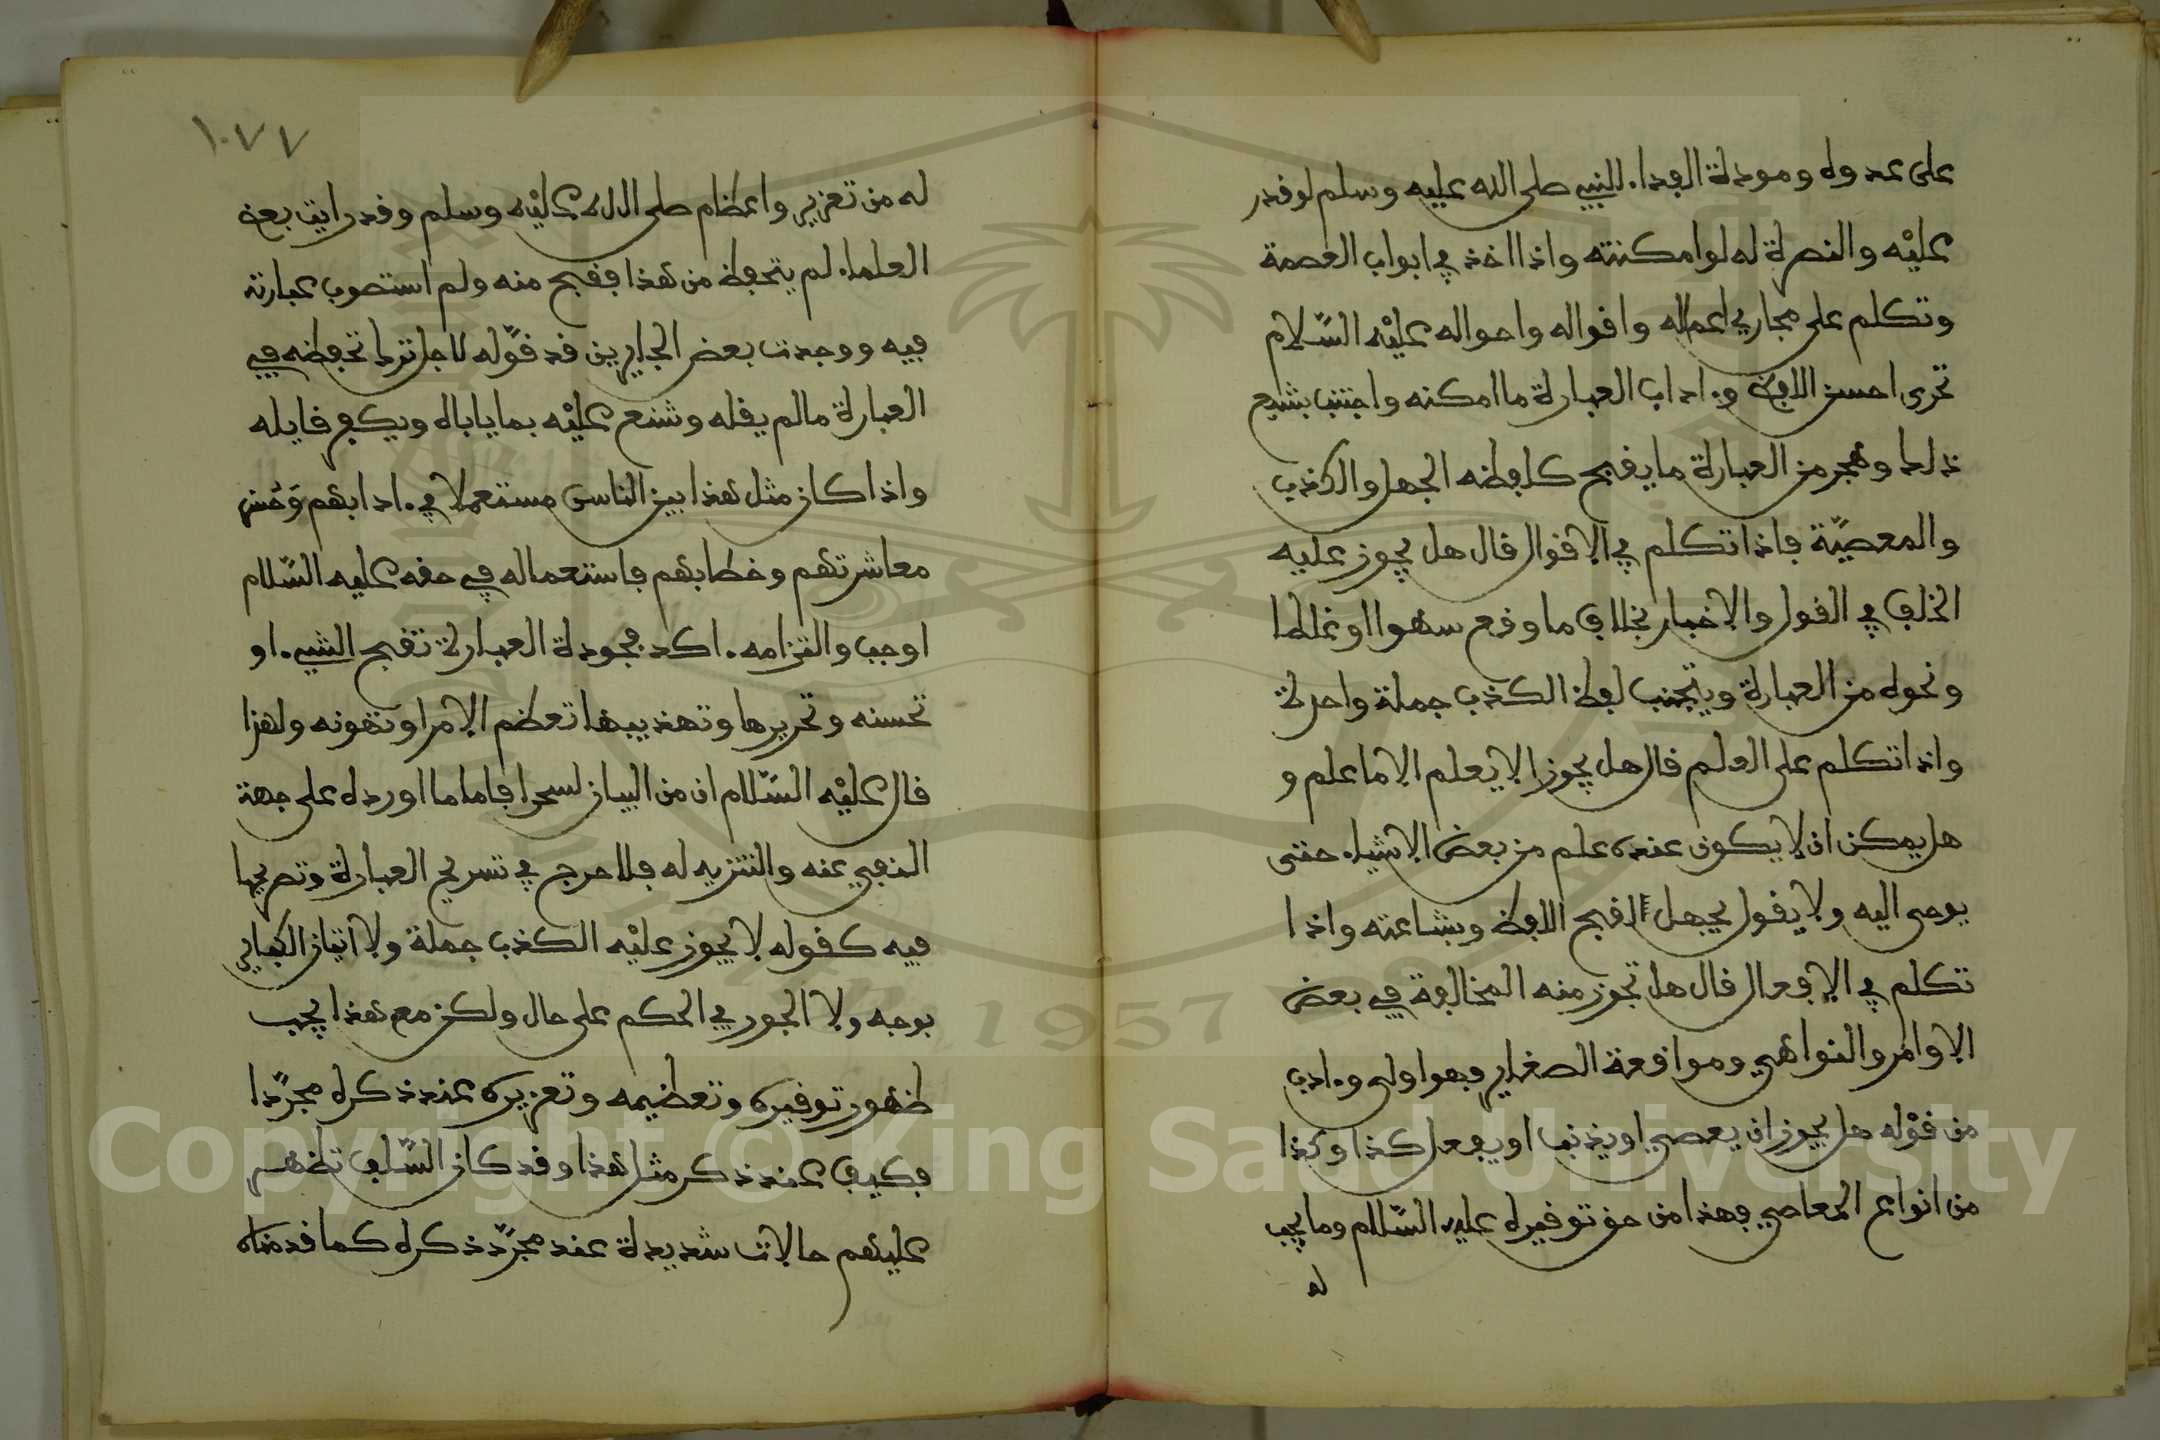 على عدوه ومودة الفداء للنبي صلى الله عليه وسلم لو قدر
عليه والنصرة له لو امكنته واذا اخذ في ابواب العصمة
وتكلم على مجاري اعماله واقواله واحواله عليه السلام
تحرى احسن اللفظ وءاداب العبارة ما امكنه واجتنب بشيع
ذلك وهجر من العبارة ما يقبح كلفظه الجهل والكذب
والمعصية فاذا تكلم في الاقوال قال هل يجوز عليه
الخلف في القول والاخبار بخلاف ما وقع سهوا او غلطا
ونحوه من العبارة ويتجنب لفظ الكذب جملة واحدة
واذا تكلم على العلم قال هل يجوز الا يعلم الا ما علم و
هل يمكن ان لا يكون عنده علم من بعض الاشياء حتى
يوحى اليه ولا يقول يجهل لقبح اللفظ وبشاعته واذا
تكلم في الافعال قال هل تجوز منه المخالفة في بعض
الاوامر والنواهي وموافعة الصغاير فهو اولى وءادب
من قوله هل يجوز ان يعصي او يذنب او يفعل كذا وكذا
من انواع المعاصي فهذا من حق توقيره عليه السلام وما يجب
له
١٠٧٧
له من تعزير واعظام صلى الله عليه وسلم وقد رايت بعض
العلماء لم يتحفظ من هذا فقبح منه ولم استصوب عبارته
فيه ووجدت بعض الجايرين قد قوله لاجل ترك تحفظه في
العبارة ما لم يقله وشنع عليه بما ياباه ويكفر قايله
واذا كان مثل هذا بين الناس مستعملا في ءادابهم وحسن
معاشرتهم وخطابهم فاستعماله في حقه عليه السلام
اوجب والتزامه ءاكد فجودة العبارة تقبح الشيء او
تحسنه وتحريرها وتهذيبها تعظم الامر او تهونه ولهذا
قال عليه السلام ان من البيان لسحرا فاما ما اورده على جهة
النفي عنه والتنزيه له فلا حرج في تسريح العبارة وتصريحها
فيه كقوله لا يجوز عليه الكذب جملة ولا اتيان الكباير
بوجه ولا الجور في الحكم على حال ولكن مع هذا يجب
ظهور توقيره وتعظيمه وتعزيره عند ذكره مجردا
فكيف عند ذكر مثل هذا وقد كان السلف تظهر
عليهم حالات شديدة عند مجرد ذكره كما قدمناه
1957
Copyright © King Saud University